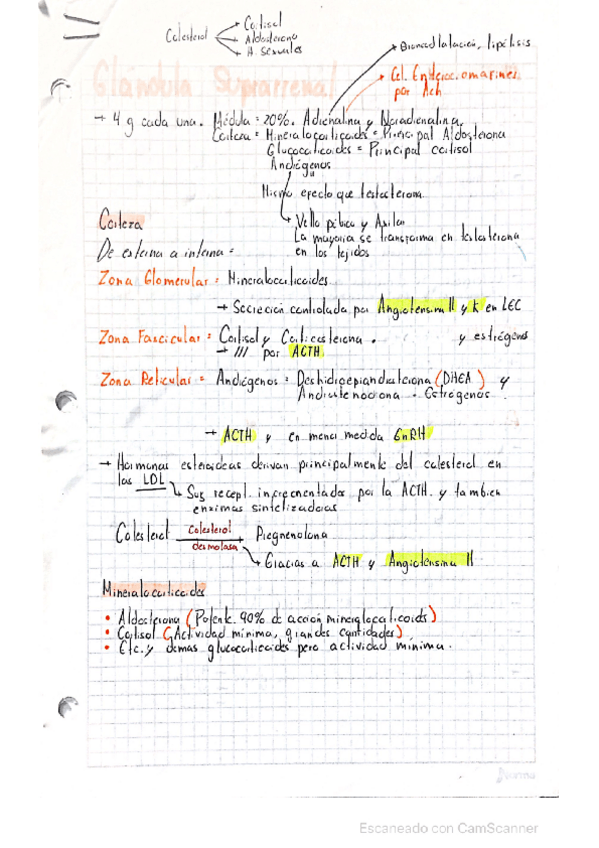 Colesterol
Cortisol
Aldosterona
H. sexuales
Broncodilatación, lipólisis
Cel. Enterocromafines
por Ach
Glándula Suprarrenal
→ 4 g cada una. Médula = 20%. Adrenalina y Noradrenalina.
Corteza = Mineralocorticoides = Principal Aldosterona
Glucocorticoides = Principal cortisol
Andrógenos
Mismo efecto que testosterona
Vello púbico y Axilar
La mayoría se transforma en testosterona
en los tejidos
Corteza
De externa a interna =
Zona Glomerular = Mineralocorticoides
→ Secreción controlada por Angiotensina II y K en LEC
Zona Fascicular = Cortisol y Corticosterona . y estrógenos
→ /// por ACTH
Zona Reticular = Andrógenos = Deshidroepiandrosterona (DHEA) y
Androstenediona . Estrógenos.
→ ACTH y en menor medida GnRH
→ Hormonas esteroideas derivan principalmente del colesterol en
las LDL
Sus recept. incrementados por la ACTH y también
enzimas sintetizadoras
Colesterol Colesterol desmolasa Pregnenolona
Gracias a ACTH y Angiotensina II
Mineralocorticoides
• Aldosterona (Potente. 90% de acción mineralocorticoids)
• Cortisol (Actividad mínima, grandes cantidades)
• Etc. y demas glucocorticoides pero actividad mínima.
Escaneado con CamScanner